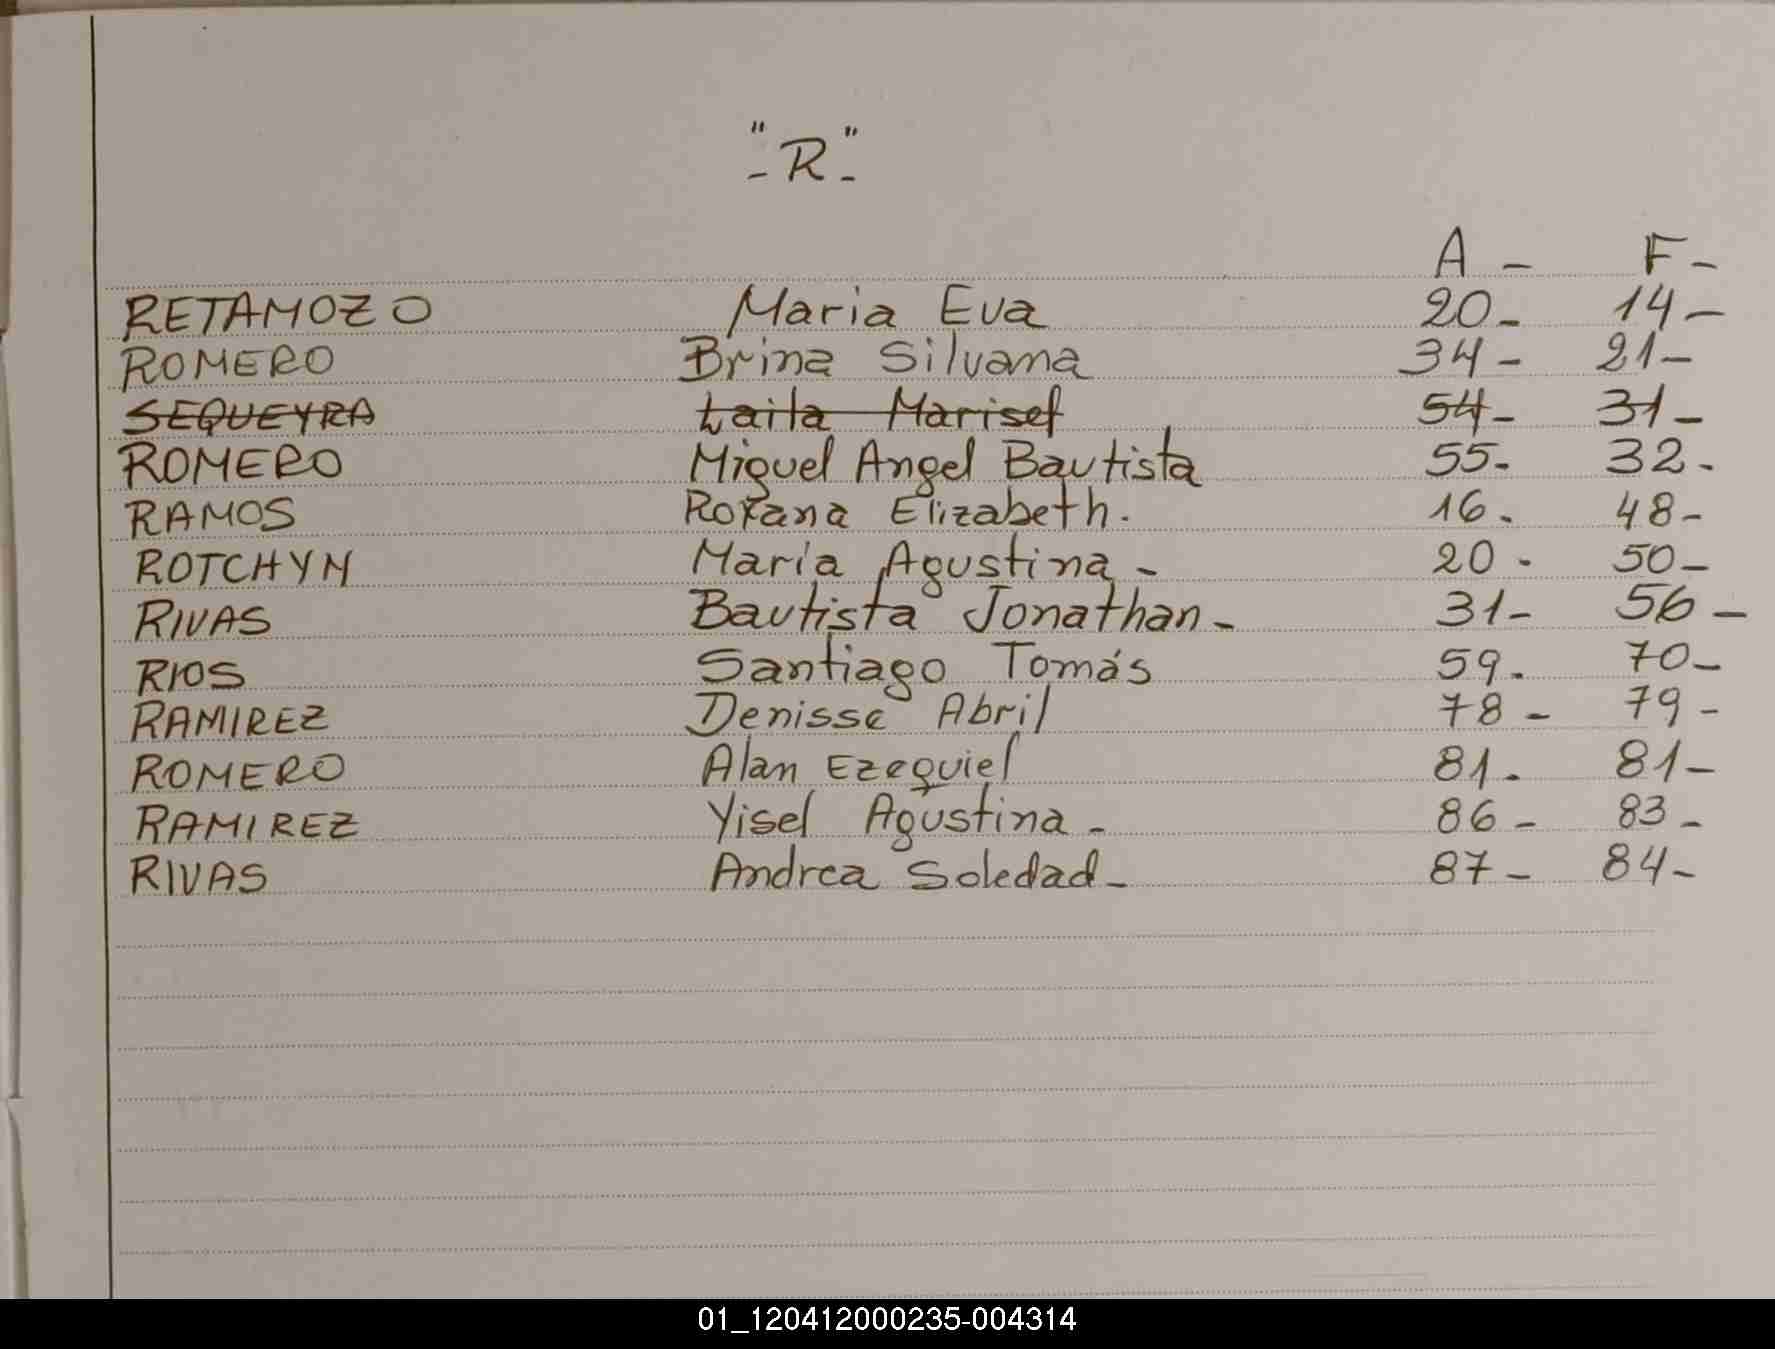 "-R-"
A - F -
RETAMOZO Maria Eva 20- 14-
ROMERO Brina Silvana 34- 21-
SEQUEYRA Laila Marisel 54- 31-
ROMERO Miguel Angel Bautista 55- 32-
RAMOS Roxana Elizabeth. 16. 48-
ROTCHYN Maria Agustina - 20- 50-
RIVAS Bautista Jonathan - 31- 56-
RIOS Santiago Tomás 59. 70-
RAMIREZ Denisse Abril 78- 79-
ROMERO Alan Ezequiel 81. 81-
RAMIREZ Yisel Agustina - 86- 83-
RIVAS Andrea Soledad - 87- 84-
01_120412000235-004314